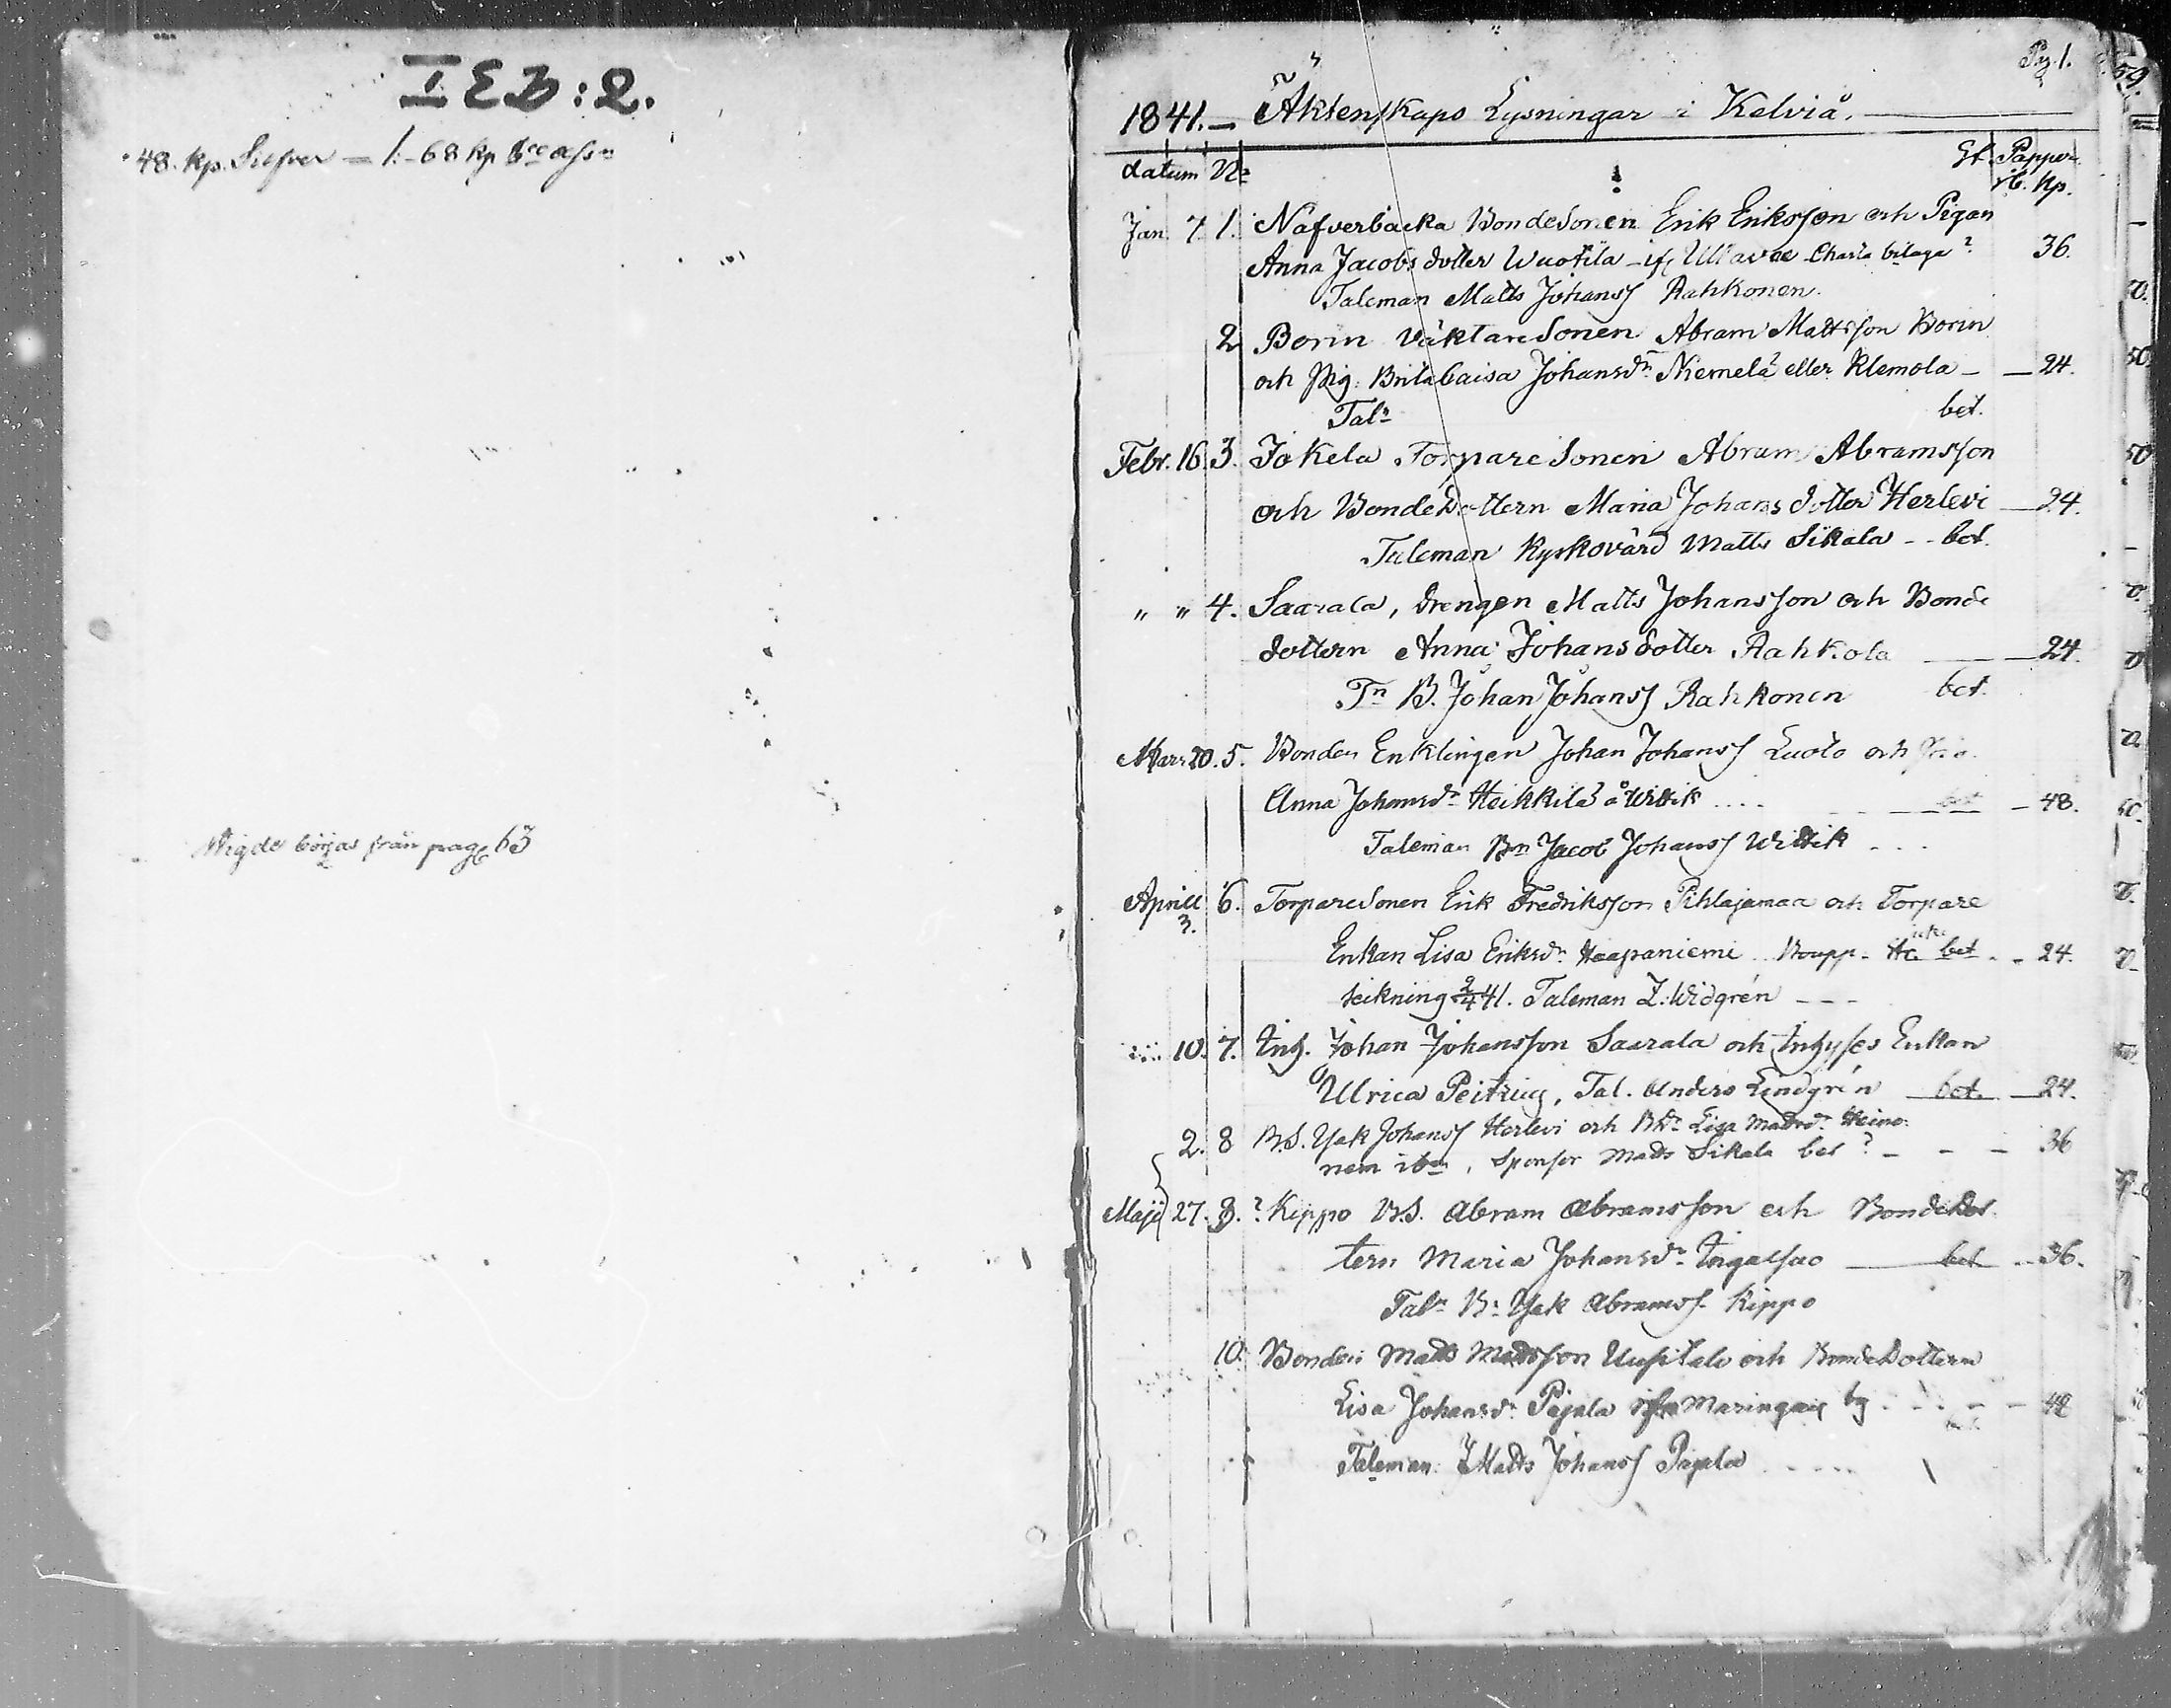 I E B : 2.
48. Kp. Silfver = 1:-68 Kp bco assn
Wigde börjas från pag 63
Pag. 1.
1841.— Äktenskaps Lysningar i Kelviå.
datum No St. Papper
rb. Kp.
Jan. 7. 1. Näfverbacka BondeSonen Erik Eriksson och Pigan
Anna Jacobsdotter Wuotila ifr Ullava Charta bilaga? 36.
Taleman Matts Johanss Rahkonen.
2 Borin VäktareSonen Abram Mattsson Borin
och Pig. Brita Caisa Johansdr Niemelä eller Klemola — 24.
Taln bet.
Febr. 16. 3. Jokela TorpareSonen Abram Abramsson
och BondeDottern Maria Johansdotter Herlevi — 24.
Taleman Kyrkovärd Matts Sikala - - bet.
" " 4. Saarala, drengen Matts Johansson och Bonde
dottern Anna Johansdotter Rahkola — 24.
Tn B. Johan Johanss Rahkonen bet.
Mars 20. 5. Bonden Enklingen Johan Johanss Luoto och
Anna Johansdr Heikkilä å Wittik .... bet — 48.
Taleman Bn Jacob Johanss Wittik . . .
Aprill 6. TorpareSonen Erik Fredriksson Pihlajamaa och Torpare
3.
Enkan Lisa Eriksdr Haapaniemi Boupp- bet - 24.
teikning 2/4 41. Taleman Z. Widgrén - - -
10. 7. Inh. Johan Johansson Saarala och Inhyses Enkan
Ulrica Peitzius, Tal. Anders Lindgrén bet. — 24.
2. 8 B.S. Jak Johanss Herlevi och BDr Lisa Madsdr Heino-
nen ibm, Sponsor Mads Sikala bet? - - - 36
Maji 27. 9. ? Kippo B.S. Abram Abramsson och BondeDot
tern Maria Johansdr Ingalsuo bet - 36.
Taln Bn Jak Abramss. Kippo
10. Bonden Matts Mattsson Uusitalo och BondeDottern
Lisa Johansdr Pajala ifrån Maringais by - - - 48
Taleman Matts Johanss Pajala . . . .